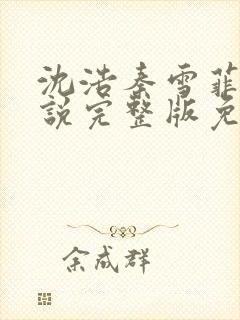 沈浩秦雪菲
説完整版免
余成群